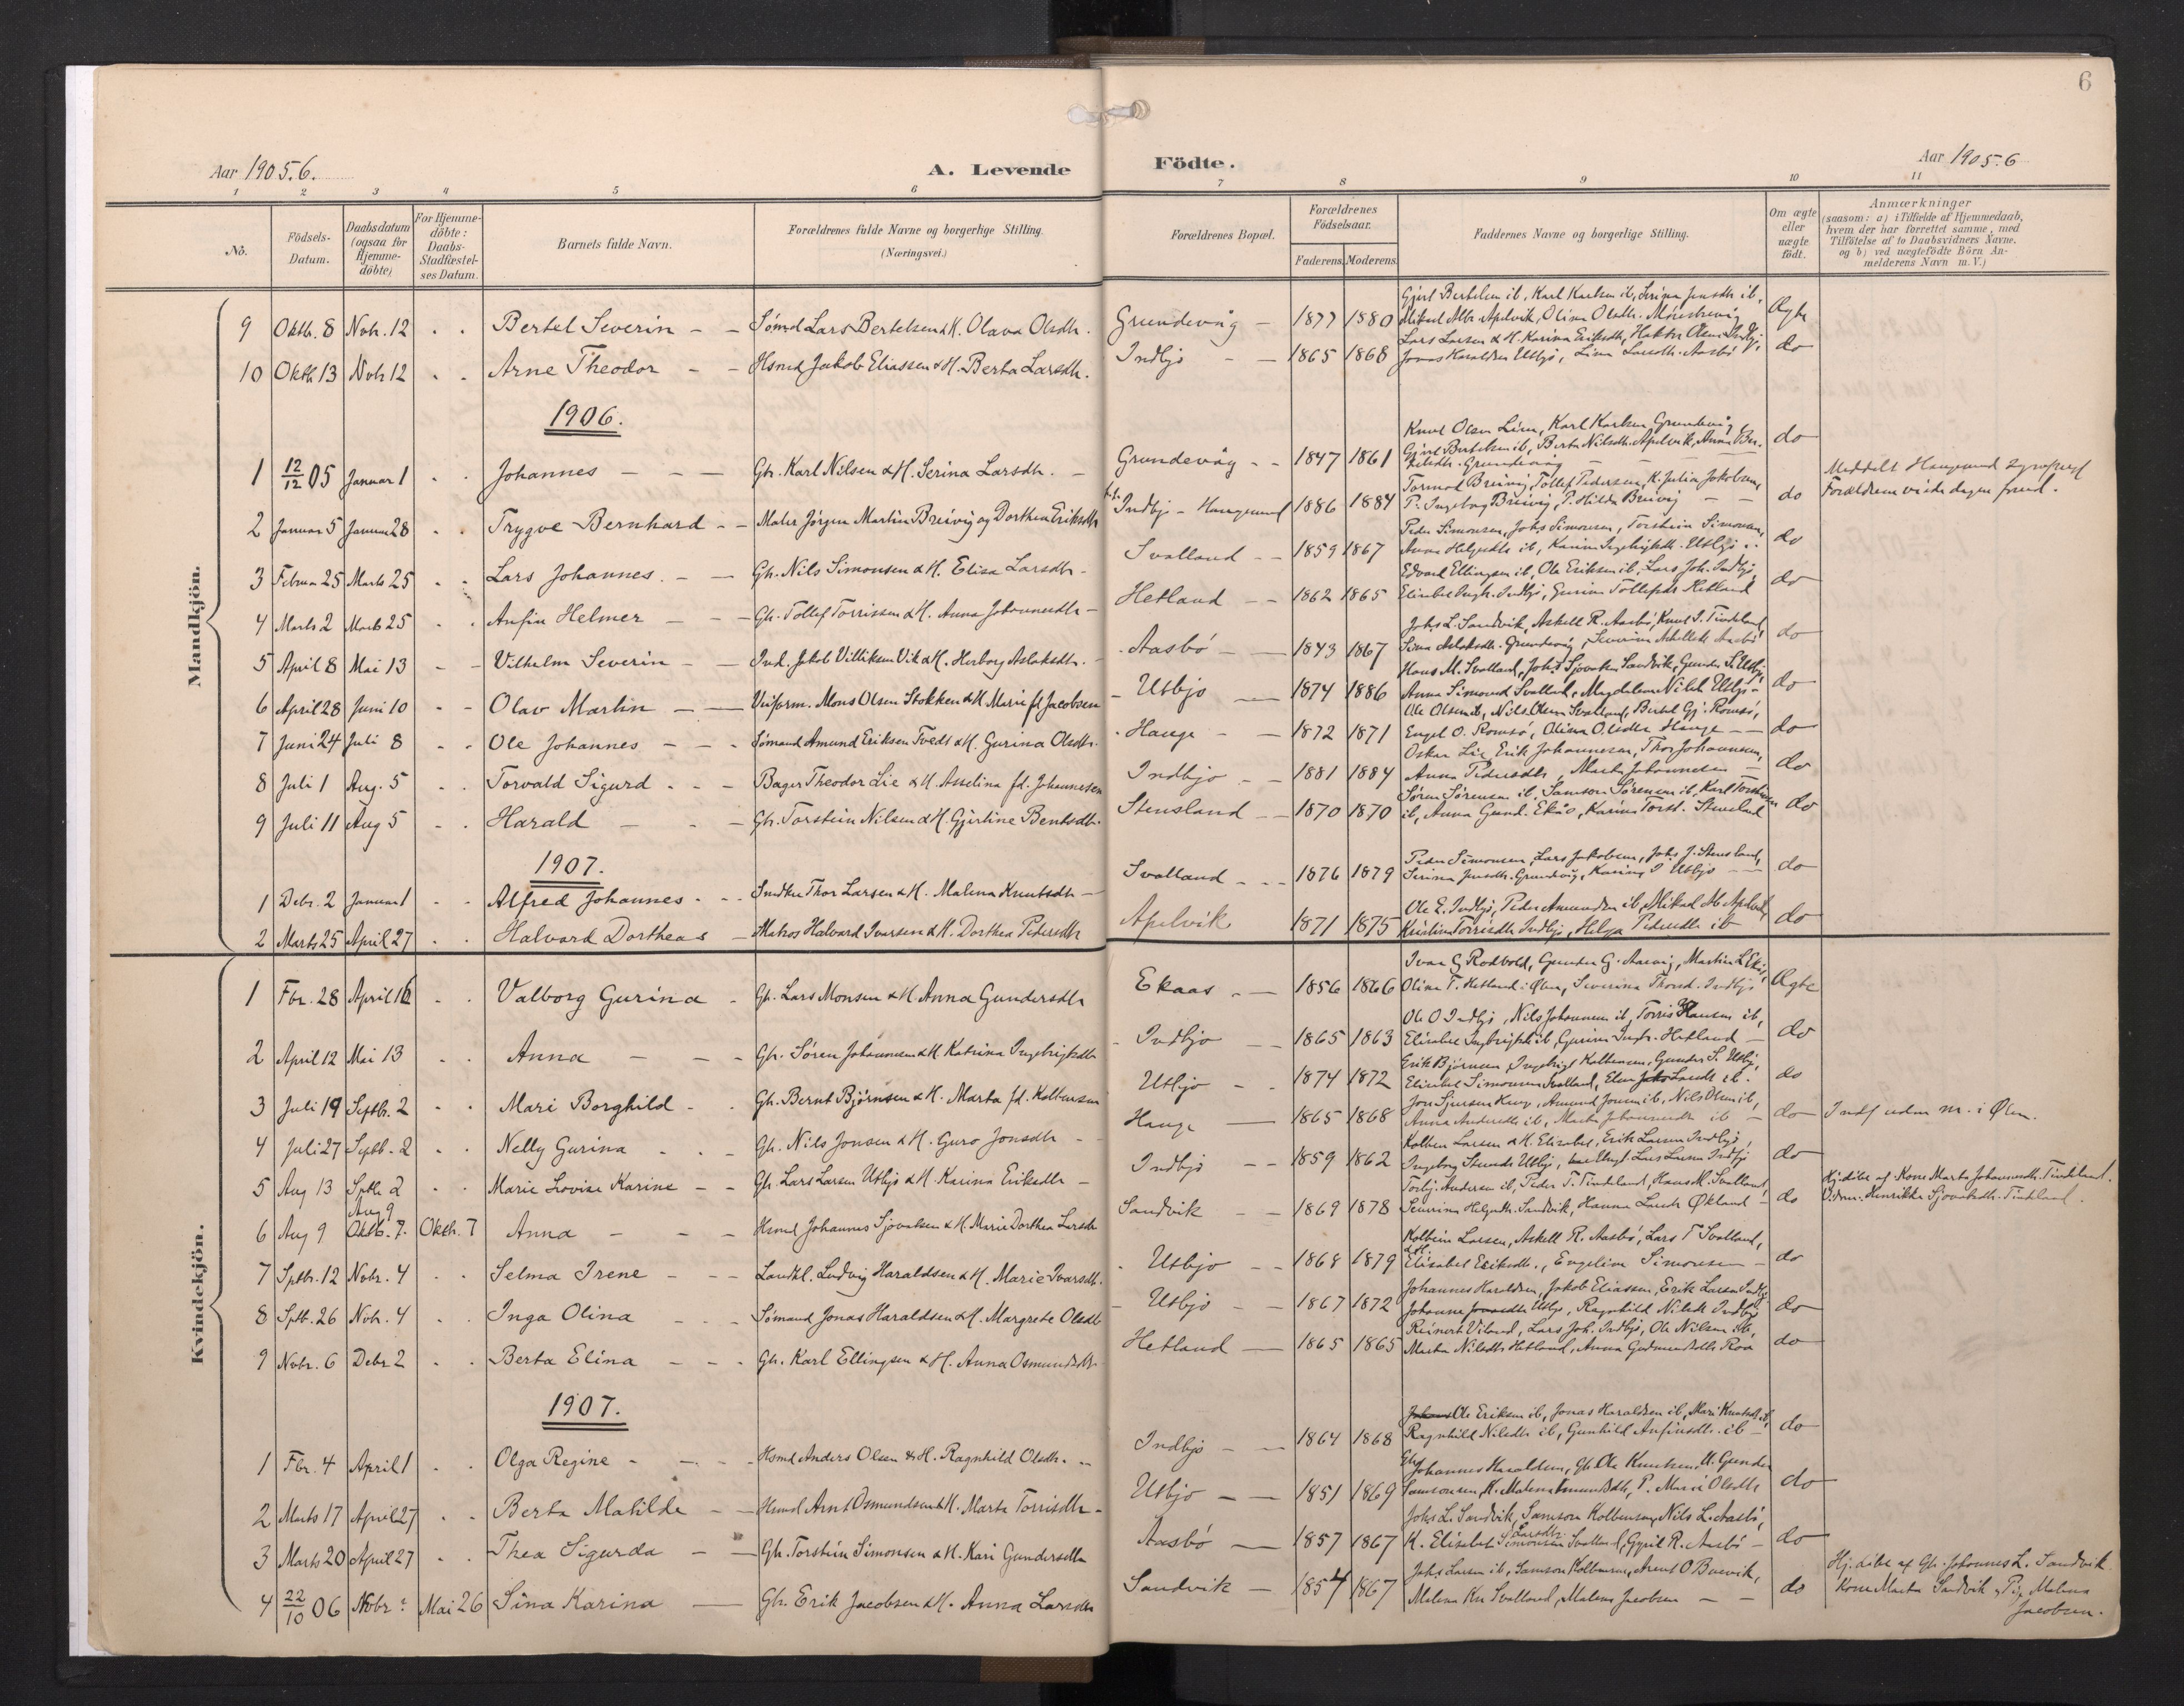 6
Aar 1905.6.
A. Levende Födte.
Aar 1905.6
1 2 3 4 5 6 7 8 9 10 11
No.
Födsels-Datum.
Daabsdatum (ogsaa for Hjemme-döbte)
For Hjemme-döbte: Daabs-Stadfæstel-ses Datum.
Barnets fulde Navn.
Forældrenes fulde Navne og borgerlige Stilling. (Næringsvei.)
Forældrenes Bopæl.
Forældrenes Födselsaar.
Faderens. Moderens.
Faddernes Navne og borgerlige Stilling.
Om ægte eller uægte födt.
Anmærkninger (saasom: a) i Tilfælde af Hjemmedaab, hvem der har forrettet samme, med Tilföielse af to Daabsvidners Navne, og b) ved uægtefödte Börn An-melderens Navn m. V.)
Mandkjön.
9 Oktb. 8 Nvb. 12 Bertel Severin Sömd Lars Bertelsen & H. Olava Olsdtr. Grundevåg 1877 1880 Gjert Bertelsen ib, Karl Karlsen ib, Serina Jensdtr ib, Mikael Olina Olsdtr. Ægte
10 Oktb 13 Nvb 12 Arne Theodor Hsmd Jakob Eliassen & H. Berta Larsdtr. Indbjo 1865 1868 Lars Larsen & H. Karina Eriksdtr, Jonas Haraldsen Utbjo, Lina Larsdtr. Aasbö do
1906.
1 12/12 05 Januar 1 Johannes Gbr. Karl Nilsen & H. Serina Larsdtr. Grundevåg 1847 1861 Knut Olsen Lien, Karl Karlsen Grundevåg, Gjert Bertelsen ib, Berta Nilsdtr. Apelvik, Anna Ber-telsdtr. Grundevåg do
2 Januar 5 Januar 28 Trygve Bernhard Maler Jörgen Martin Breivig og Dorthea Eriksdtr Indbjo - Haugesund 1886 1884 Tormod Breivig, Tollef Pedersen, K. Julia Jakobsen, P. Ingeborg Breivig, P. Hilda Breivig do Meddelt Haugesund Forældrene viede dagen forud.
3 Februar 25 Marts 25 Lars Johannes Gbr. Nils Simonsen & H. Elisa Larsdtr Svolland 1859 1867 Peder Simonsen, Johs Simonsen, Torstein Simonsen, Anna Helgesdtr ib, Karina Ingebrigtsdtr. Utbjo do
4 Marts 2 Marts 25 Anfin Helmer Gbr. Tollef Torrissen & H. Anna Johannesdtr Hetland 1862 1865 Edvard Ellingsen ib, Ole Eriksen ib, Lars Joh. Indbjo, Elisabet Ingbr. Indbjo, Gurina Tollefsdtr Hetland do
5 April 8 Mai 13 Vilhelm Severin Ind. Jakob Villiksen Vik & H. Herborg Aslaksdtr. Aasbö 1843 1867 Johs. L. Sandvik, Askell R. Aasbö, Knut J. Tindeland, Sina Aslaksdtr. Grundevåg, Severina Askellsdtr Aasbö do
6 April 28 Juni 10 Olav Martin Mons Olsen Stokken & H. Marie fd Jacobsen Utbjo 1874 1886 Hans M. Svolland, Joh. Sjovatsen Sandvik, Gunder S. Utbjo, Anna Simonsd Svolland, Magdalena Nilsd. Utbjo do
7 Juni 24 Juli 8 Ole Johannes Sömand Amund Eriksen Tvedt & H. Gurina Olsdtr. Hauge 1872 1871 Ole Olsen ib, Nils Olsen Svolland, Bertel Gj. Romsö, Engel O. Romsö, Olina Olsdtr Hauge do
8 Juli 1 Aug. 5 Torvald Sigurd Bager Theodor Lie & H. Asselina fd. Johannesen Indbjo 1881 1884 Oskar Lie, Erik Johannesen, Thor Johannesen, Anna Pedersdtr, Marta Johannesen do
9 Juli 11 Aug 5 Harald Gbr. Torstein Nilsen & H. Gjertine Bentsdtr. Stensland 1870 1870 Sören Sörensen ib, Samson Sörensen ib, Karl Torstensen ib, Anna Gund. Ekås, Karina Torst. Stensland do
1907.
1 Debr. 2 Januar 1 Alfred Johannes Snedker Thor Larsen & H. Malena Knutsdtr Svolland 1876 1879 Peder Simonsen, Lars Jakobsen, Johs J. Stensland, Serina Jensdtr. Grundevåg, Karina I Utbjo do
2 Marts 25 April 27 Halvard Dortheas Matros Halvard Ivarsen & H. Dorthea Pedersdtr Apelvik 1871 1875 Ole E. Indbjo, Peder Amundsen ib, Mikael Ab Apelvik, Kristina Torrisdtr Indbjo, Helga Pedersdtr ib do
Kvindekjön.
1 Fbr. 28 April 16 Valborg Gurina Gbr. Lars Monsen & H Anna Gundersdtr Ekaas 1856 1866 Ivar G Rodvold, Gunder G. Aarvig, Martin L Ekås, Olina T. Hetland i Ølen, Severina Thorsd. Indbjo Ægte
2 April 12 Mai 13 Anna Gbr. Sören Johannesen & H Katrina Ingebrigtsdtr Indbjo 1865 1863 Ole O Indbjo, Nils Johannesen ib, Torris Hansen ib, Elisabet Ingebrigtsdtr ib, Gurina Ingbr. Hetland do
3 Juli 19 Septb. 2 Mari Borghild Gbr. Bernt Björnsen & H. Marta fd. Kolbensen Utbjo 1874 1872 Erik Björnsen, Ingebrigt Kolbensen, Gunder S. Utbjo, Elisabet Simonsen Svolland, Elen Larsdtr ib. do
4 Juli 27 Septb. 2 Nelly Gurina Gbr. Nils Jonsen & H. Guro Jonsdtr Hauge 1865 1868 Jon Sjursen Amund Jonsen ib, Nils Olsen ib, Anna Andersdtr ib, Marta Johannesdtr ib do Indf uden nr. i Ølen.
5 Aug 13 Sptb 2 Marie Lovise Karine Gbr. Lars Larsen Utbjo & H. Karina Eriksdtr Indbjo 1859 1862 Kolben Larsen & H. Elisabet, Erik Larsen Indbjo, Ingeborg Utbjo, Lars Larsen Indbjo do
6 Aug 9 Aug 9 Oktb. 7. Oktb. 7 Anna Hsmd Johannes Sjovatsen & H Marie Dorthea Larsdtr Sandvik 1869 1878 Torbj. Andersen ib, Peder T. Tindeland, Hans M. Svolland, Severina Helgesdtr. Sandvik, Hanna Larsdtr Økland do Hj.döbt af Kone Marta Johannesdtr. Tindeland. Vidner: Henrikke Sjovatsdtr. Tindeland.
7 Sptbr. 12 Nvbr. 4 Selma Irene Landhl. Ludvig Haraldsen & H. Marie Ivarsdtr. Utbjo 1868 1879 Kolbein Larsen, Askell R. Aasbö, Lars T Svolland, Elisabet Eriksdtr., Engeline Simonsen do
8 Sptb. 26 Nvbr. 4 Inga Olina Sömand Jonas Haraldsen & H. Margrete Olsdtr Utbjo 1867 1872 Johannes Haraldsen, Jakob Eliassen, Erik Larsen Indbjo, Johanne Jonasdtr Utbjo, Ragnhild Nilsdtr Indbjo do
9 Nvbr. 6 Debr 2 Berta Elina Gbr. Karl Ellingsen & H. Anna Osmundsdtr. Hetland 1865 1865 Reinert Lars Joh. Indbjo, Ole Nilsen ib, Marta Nilsdtr Hetland, Anna Gudmundsdtr Roa do
1907.
1 Fbr. 4 April 1 Olga Regine Hsmd Anders Olsen & H. Ragnhild Olsdtr. Indbjo 1864 1868 Ole Eriksen ib, Jonas Haraldsen ib, Mari Knutsdtr ib, Ragnhild Nilsdtr ib, Gunhild Anfinsdtr. ib do
2 Marts 17 April 27 Berta Matilde Hsmd Arnt Osmundsen & H. Marta Torrisdtr Utbjo 1851 1869 Gbr Johannes Haraldsen, Gbr Ole Knutsen, U. Gunder Samsonsen, K. Malena Amundsdtr, P. Marie Olsdtr do
3 Marts 20 April 27 Thea Sigurda Gbr. Torstein Simonsen & H. Kari Gundersdtr Aasbö 1857 1867 Johs L. Sandvik, Samson Kolbensen, Nils L. Aasbö, K. Elisabet Simonsen Svolland, Gyril R. Aasbö do
4 22/10 06 Nvbr: Mai 26 Sina Karina Gbr. Erik Jacobsen & H. Anna Larsdtr Sandvik 1854 1867 Johs Larsen ib, Samson Kolbensen, Arent O Buevik, Malena Kn. Svolland, Malena Jacobsen do Hj. döbt af Gbr. Johannes L. Sandvik Kone Marta Sandvik, Pige Malena Jacobsen.